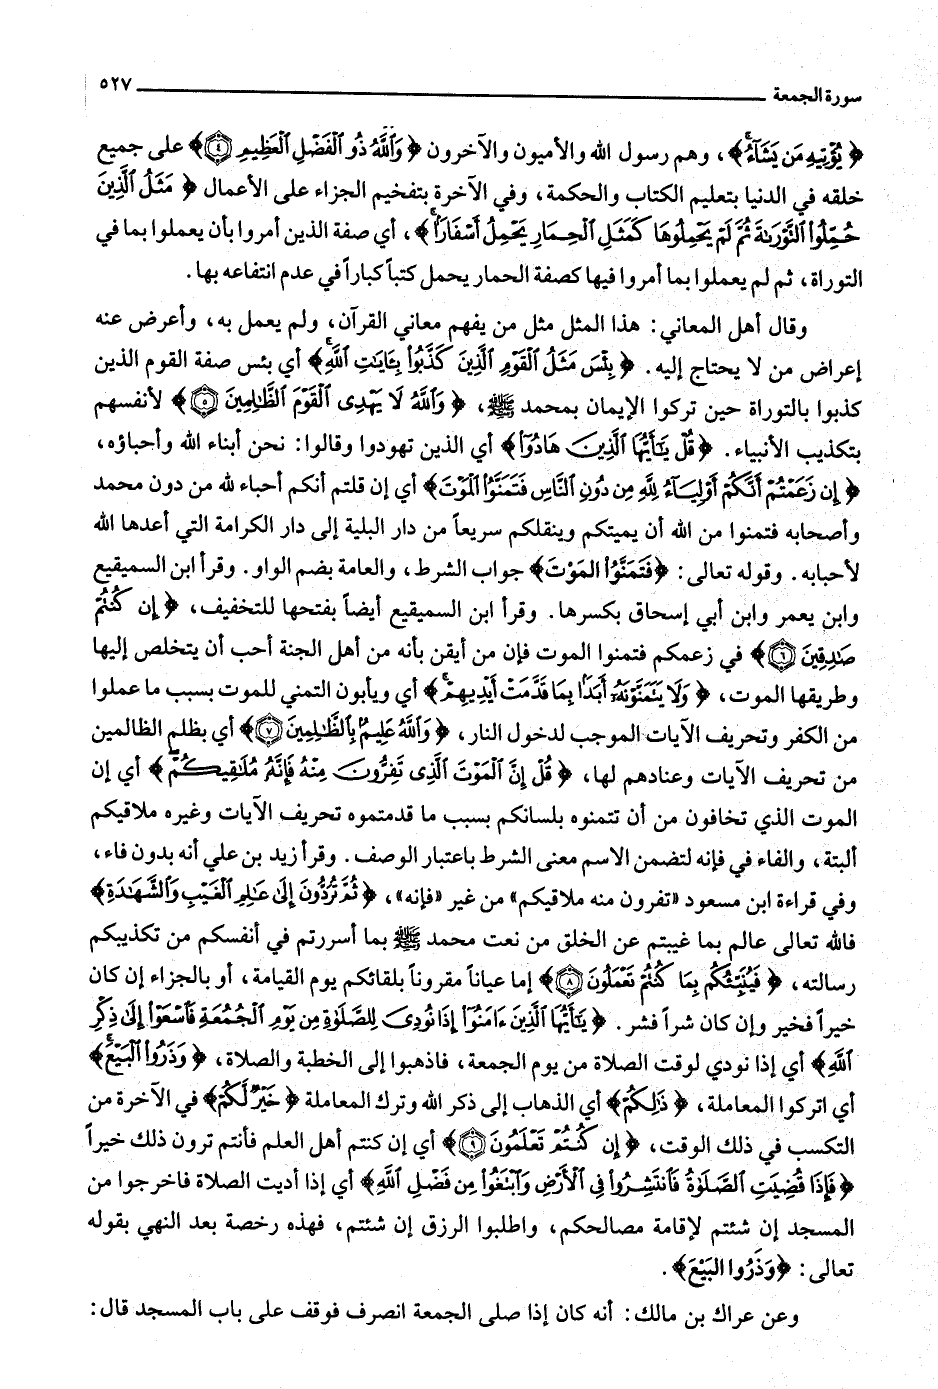 سورة الجمعة ٥٢٧
﴿ يُؤْتِيهِ مَن يَشَآءُ ﴾، وهم رسول الله والأميون والآخرون ﴿ وَٱللَّهُ ذُو ٱلْفَضْلِ ٱلْعَظِيمِ ٤ ﴾ على جميع
خلقه في الدنيا بتعليم الكتاب والحكمة، وفي الآخرة بتفخيم الجزاء على الأعمال ﴿ مَثَلُ ٱلَّذِينَ
حُمِّلُوا۟ ٱلتَّوْرَىٰةَ ثُمَّ لَمْ يَحْمِلُوهَا كَمَثَلِ ٱلْحِمَارِ يَحْمِلُ أَسْفَارًۢا ﴾، أي صفة الذين أمروا بأن يعملوا بما في
التوراة، ثم لم يعملوا بما أمروا فيها كصفة الحمار يحمل كتباً كباراً في عدم انتفاعه بها.
وقال أهل المعاني: هذا المثل مثل من يفهم معاني القرآن، ولم يعمل به، وأعرض عنه
إعراض من لا يحتاج إليه. ﴿ بِئْسَ مَثَلُ ٱلْقَوْمِ ٱلَّذِينَ كَذَّبُوا۟ بِـَٔايَٰتِ ٱللَّهِ ﴾ أي بئس صفة القوم الذين
كذبوا بالتوراة حين تركوا الإيمان بمحمد ﷺ، ﴿ وَٱللَّهُ لَا يَهْدِى ٱلْقَوْمَ ٱلظَّٰلِمِينَ ٥ ﴾ لأنفسهم
بتكذيب الأنبياء. ﴿ قُلْ يَٰٓأَيُّهَا ٱلَّذِينَ هَادُوٓا۟ ﴾ أي الذين تهودوا وقالوا: نحن أبناء الله وأحباؤه،
﴿ إِن زَعَمْتُمْ أَنَّكُمْ أَوْلِيَآءُ لِلَّهِ مِن دُونِ ٱلنَّاسِ فَتَمَنَّوُا۟ ٱلْمَوْتَ ﴾ أي إن قلتم أنكم أحباء لله من دون محمد
وأصحابه فتمنوا من الله أن يميتكم وينقلكم سريعاً من دار البلية إلى دار الكرامة التي أعدها الله
لأحبابه. وقوله تعالى: ﴿فَتَمَنَّوُا المَوْتَ﴾ جواب الشرط، والعامة بضم الواو. وقرأ ابن السميقيع
وابن يعمر وابن أبي إسحاق بكسرها. وقرأ ابن السميقيع أيضاً بفتحها للتخفيف، ﴿ إِن كُنتُمْ
صَٰدِقِينَ ٦ ﴾ في زعمكم فتمنوا الموت فإن من أيقن بأنه من أهل الجنة أحب أن يتخلص إليها
وطريقها الموت، ﴿ وَلَا يَتَمَنَّوْنَهُۥٓ أَبَدًۢا بِمَا قَدَّمَتْ أَيْدِيهِمْ ﴾ أي ويأبون التمني للموت بسبب ما عملوا
من الكفر وتحريف الآيات الموجب لدخول النار، ﴿ وَٱللَّهُ عَلِيمٌۢ بِٱلظَّٰلِمِينَ ٧ ﴾ أي بظلم الظالمين
من تحريف الآيات وعنادهم لها، ﴿ قُلْ إِنَّ ٱلْمَوْتَ ٱلَّذِى تَفِرُّونَ مِنْهُ فَإِنَّهُۥ مُلَٰقِيكُمْ ﴾ أي إن
الموت الذي تخافون من أن تتمنوه بلسانكم بسبب ما قدمتموه تحريف الآيات وغيره ملاقيكم
ألبتة، والفاء في فإنه لتضمن الاسم معنى الشرط باعتبار الوصف. وقرأ زيد بن علي أنه بدون فاء،
وفي قراءة ابن مسعود «تفرون منه ملاقيكم» من غير «فإنه»، ﴿ ثُمَّ تُرَدُّونَ إِلَىٰ عَٰلِمِ ٱلْغَيْبِ وَٱلشَّهَٰدَةِ ﴾
فالله تعالى عالم بما غيبتم عن الخلق من نعت محمد ﷺ بما أسررتم في أنفسكم من تكذيبكم
رسالته، ﴿ فَيُنَبِّئُكُم بِمَا كُنتُمْ تَعْمَلُونَ ٨ ﴾ إما عياناً مقروناً بلقائكم يوم القيامة، أو بالجزاء إن كان
خيراً فخير وإن كان شراً فشر. ﴿ يَٰٓأَيُّهَا ٱلَّذِينَ ءَامَنُوٓا۟ إِذَا نُودِىَ لِلصَّلَوٰةِ مِن يَوْمِ ٱلْجُمُعَةِ فَٱسْعَوْا۟ إِلَىٰ ذِكْرِ
ٱللَّهِ ﴾ أي إذا نودي لوقت الصلاة من يوم الجمعة، فاذهبوا إلى الخطبة والصلاة، ﴿ وَذَرُوا۟ ٱلْبَيْعَ ﴾
أي اتركوا المعاملة، ﴿ ذَٰلِكُمْ ﴾ أي الذهاب إلى ذكر الله وترك المعاملة ﴿ خَيْرٌ لَّكُمْ ﴾ في الآخرة من
التكسب في ذلك الوقت، ﴿ إِن كُنتُمْ تَعْلَمُونَ ٩ ﴾ أي إن كنتم أهل العلم فأنتم ترون ذلك خيراً
﴿ فَإِذَا قُضِيَتِ ٱلصَّلَوٰةُ فَٱنتَشِرُوا۟ فِى ٱلْأَرْضِ وَٱبْتَغُوا۟ مِن فَضْلِ ٱللَّهِ ﴾ أي إذا أديت الصلاة فاخرجوا من
المسجد إن شئتم لإقامة مصالحكم، واطلبوا الرزق إن شئتم، فهذه رخصة بعد النهي بقوله
تعالى: ﴿وَذَرُوا البَيْعَ﴾.
وعن عراك بن مالك: أنه كان إذا صلى الجمعة انصرف فوقف على باب المسجد قال: